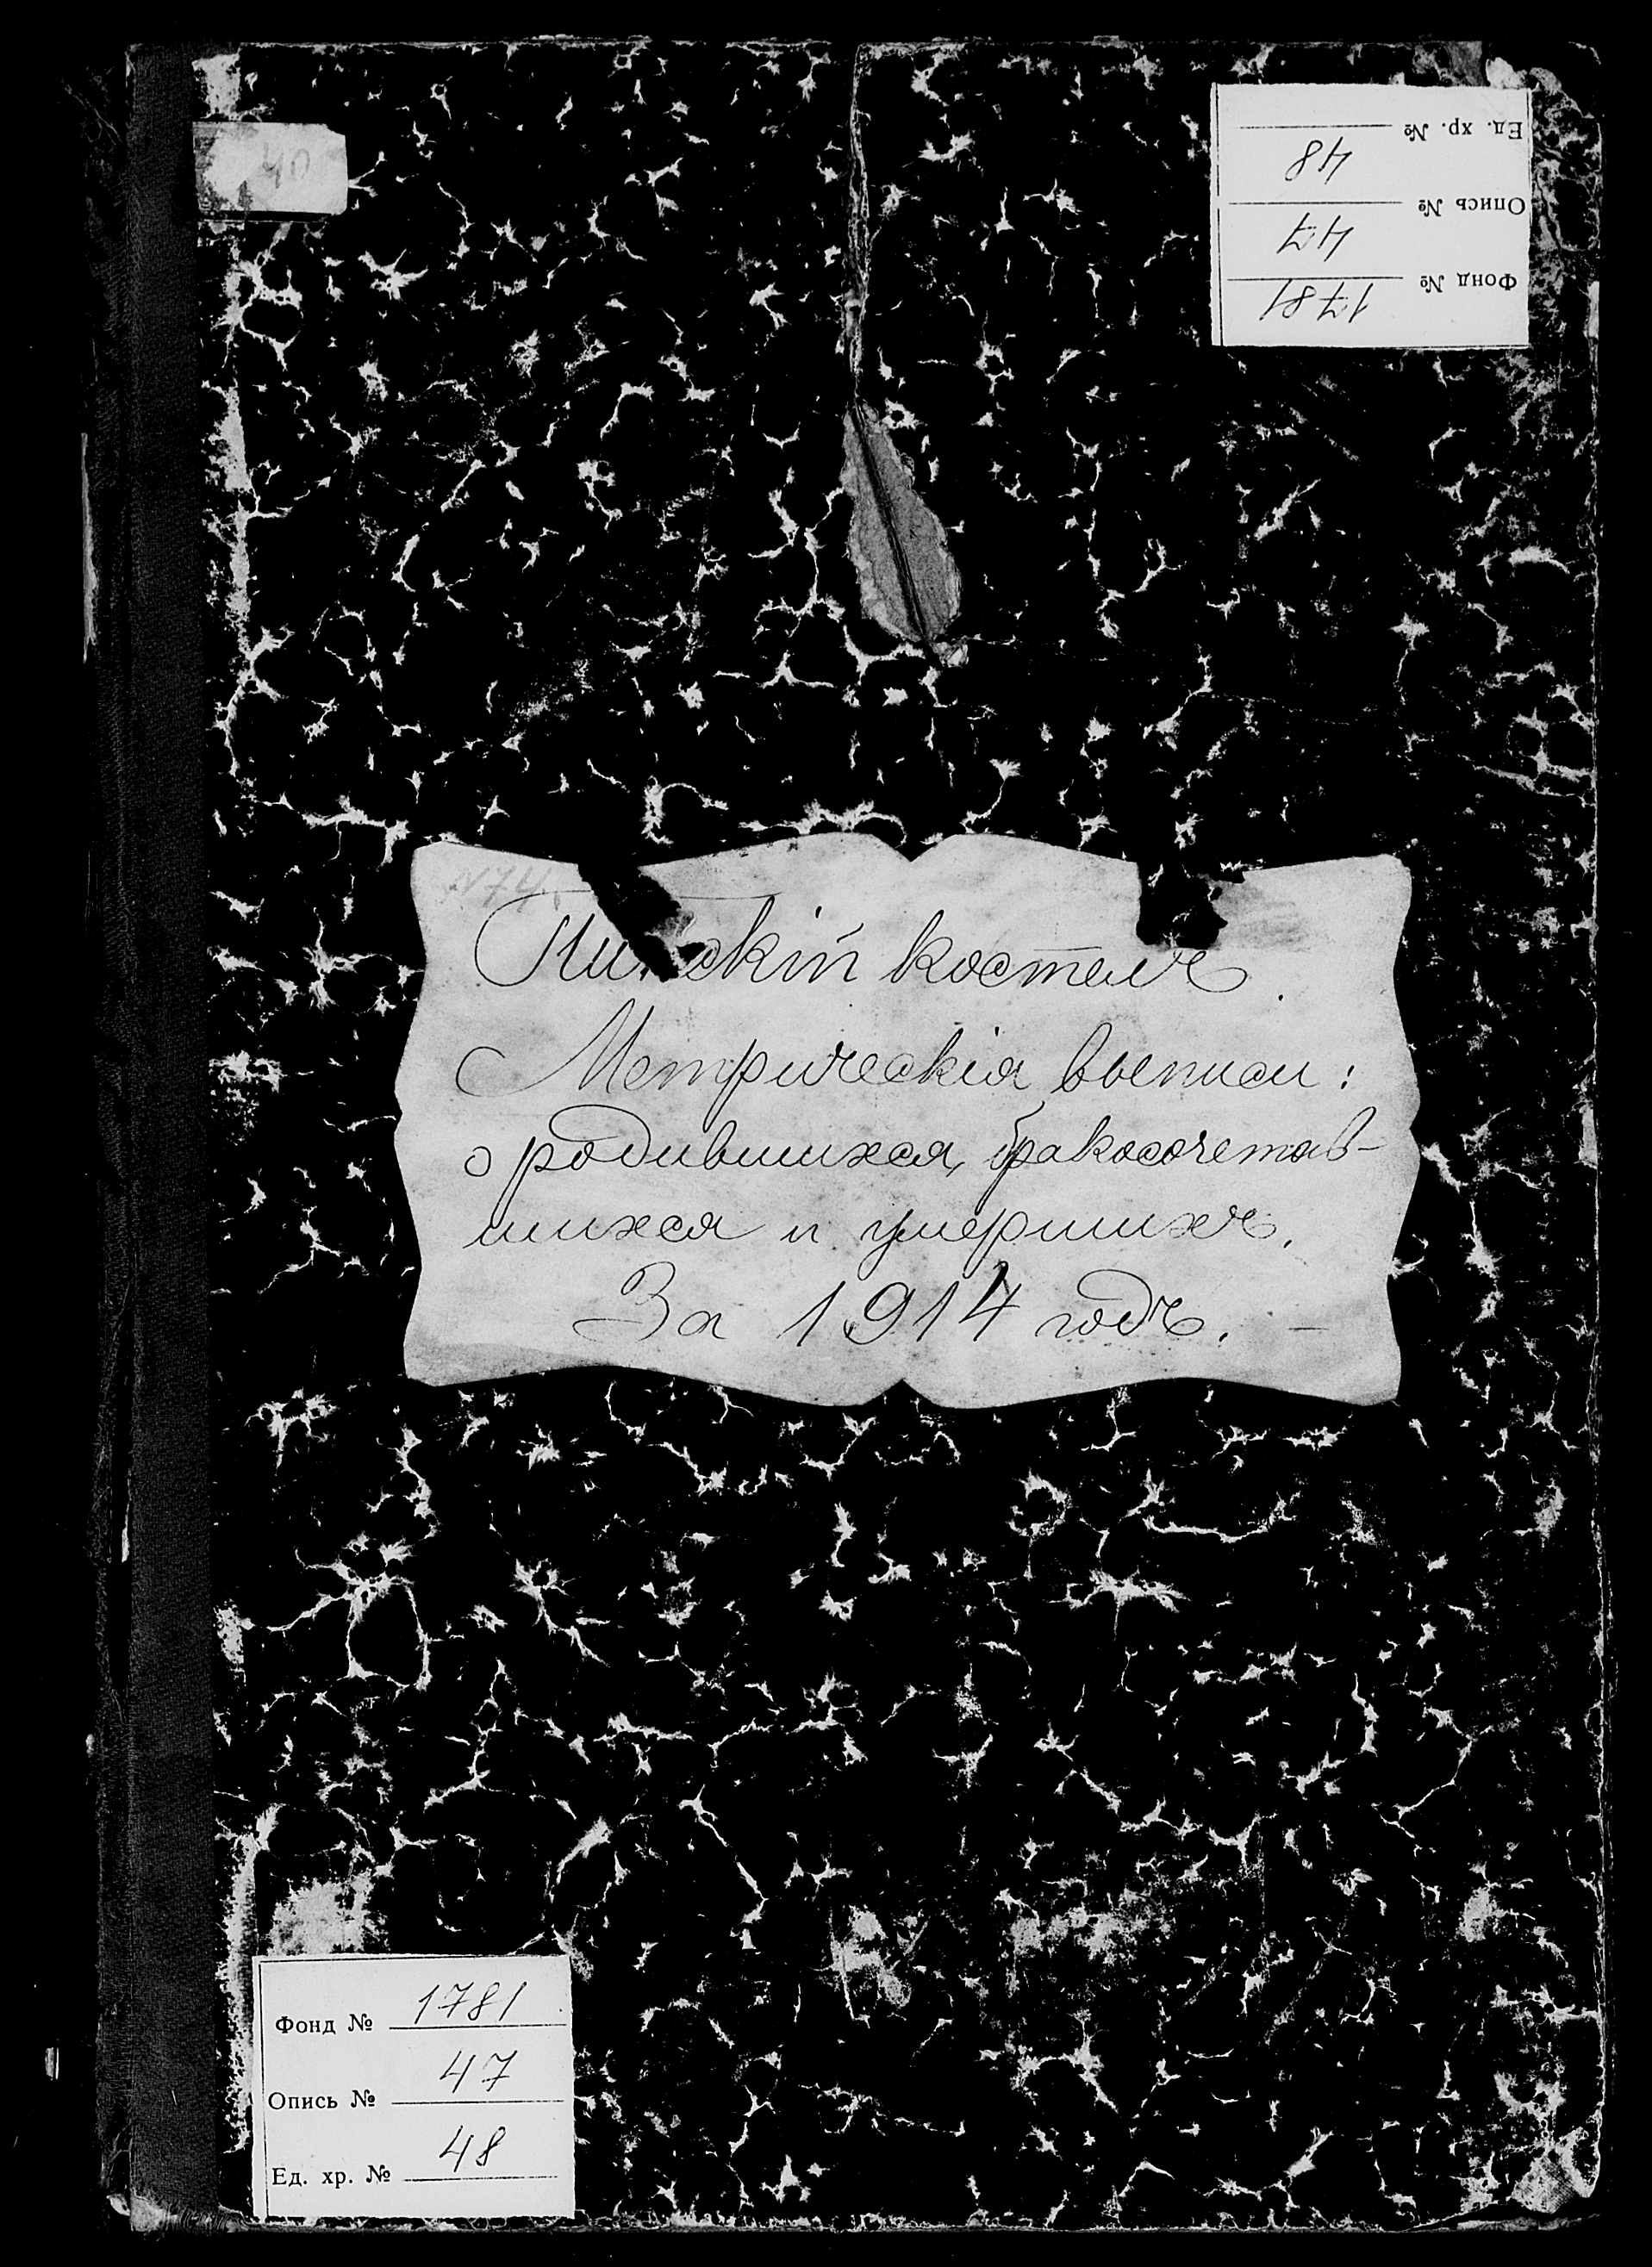 40
Ед. хр. № 48
Опись № 47
Фонд № 1781
N 74
костелъ.
Метрическія выписи:
о родившихся, бракосочетав-
шихся и умершихъ.
За 1914 годъ. —
Фонд № 1781
Опись № 47
Ед. хр. № 48